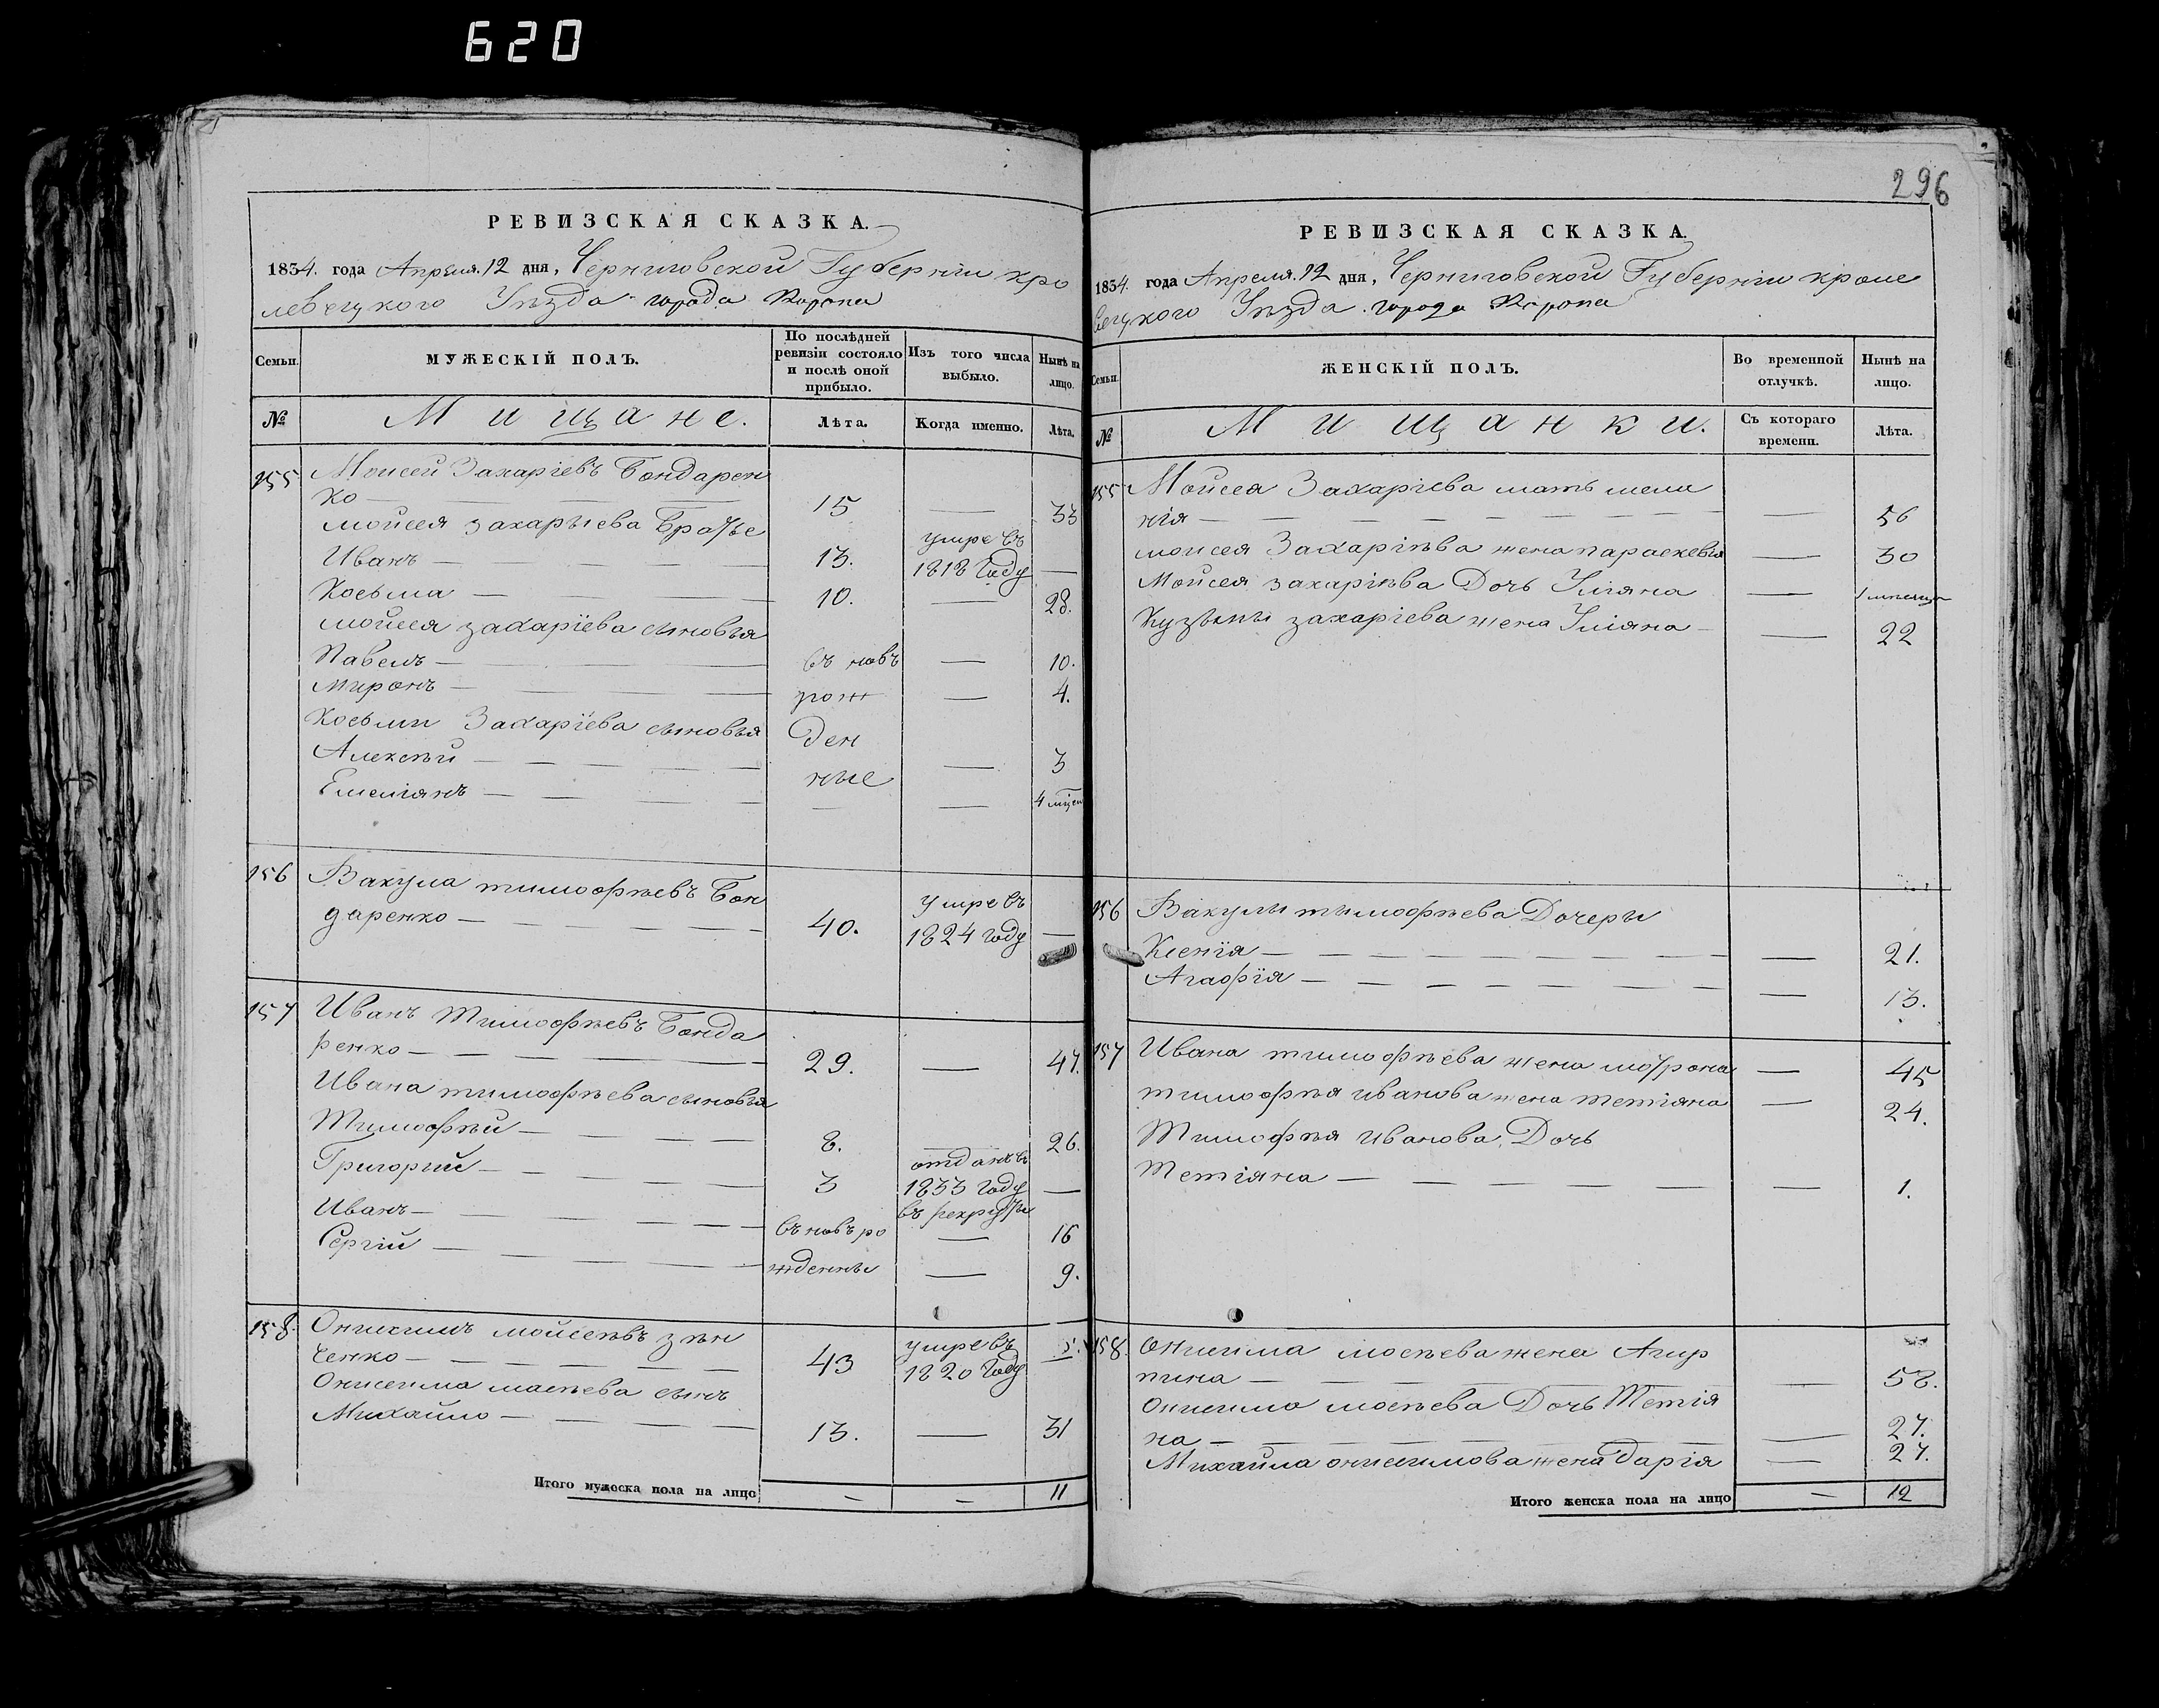 620
296
РЕВИЗСКАЯ СКАЗКА.
1834. года Апреля. 12 дня, Черниговской Губерніи кро
левецкого Уѣзда города Коропа
Семьи. МУЖЕСКІЙ ПОЛЪ. По послѣдней ревизіи состояло и послѣ оной прибыло. Изъ того числа выбыло. Нынѣ на лицо.
№ Мищане. Лѣта. Когда именно. Лѣта.
155 Моисей Захаріевъ Бондарен
ко — 15 — 33
мойсея захарыева Братье
Иванъ — 13. умре въ 1818 Году —
Косьма — 10. — 28.
мойсея захаріева сыновья
Павелъ — въ новъ — 10.
Миронъ — рож — 4.
Косьми Захаріева сыновья ден
Алексѣй — ные — 3
Емеліянъ — — 4 мѣсе
156 Вакула тимофѣевъ Бон
даренко — 40. умре въ 1824 году —
157 Иванъ Тимофѣевъ Бонда
ренко — 29. — 47.
Ивана тимофѣева сыновья
Тимофѣй — 8. — 26.
Григорий — 3 отданъ въ 1833 Году въ рекруты —
Иванъ — въ новъ ро — 16
Сергій — жденны — 9.
158. Онисимъ мойсеѣвъ зѣн
ченко — 43 умре въ 1820 Году
Онисима масѣева сынъ
Михайло — 13. — 31
Итого мужеска пола на лицо — — 11
РЕВИЗСКАЯ СКАЗКА.
1834. года Апреля. 12 дня, Черниговской Губерніи кроле
вецкого Уѣзда. города Коропа
Семьи. ЖЕНСКІЙ ПОЛЪ. Во временной отлучкѣ. Нынѣ на лицо.
№ Мищанки. Съ котораго времени. Лѣта.
155 Мойсея Захаріева мать мела
нія — — 56
моисея Захаріѣва жена параскевья — 30
Мойсея захаріѣва Дочь Уліяна — 1 мѣсяца
Кузьмы захаріева жена Уліяна — 22
156 Вакулы тымофѣева Дочеры
Ксенія — — 21.
Агафія — — 13.
157 Ивана тимофѣева жена мотрона — 45
тимофѣя иванова жена тетіяна — 24.
Тимофѣя иванова Дочь
Тетіяна — — 1.
158. Онисима мосѣева жена Агир
пина — — 58.
Онисима мосѣева Дочь Тетія
на — — 27.
Михайла онисимова жена Дарія — 27.
Итого женска пола на лицо — 12